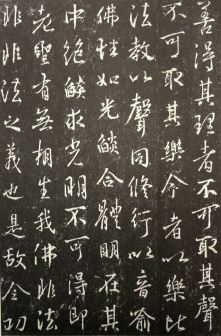 善得其理者不可取其聲
不可取其樂今者以樂比
法教以聲同修行以音喻
佛性如光燄合體明在其
中絶燄求光明不可得即
老聖有無相生我佛非法
非非法之義也是故今